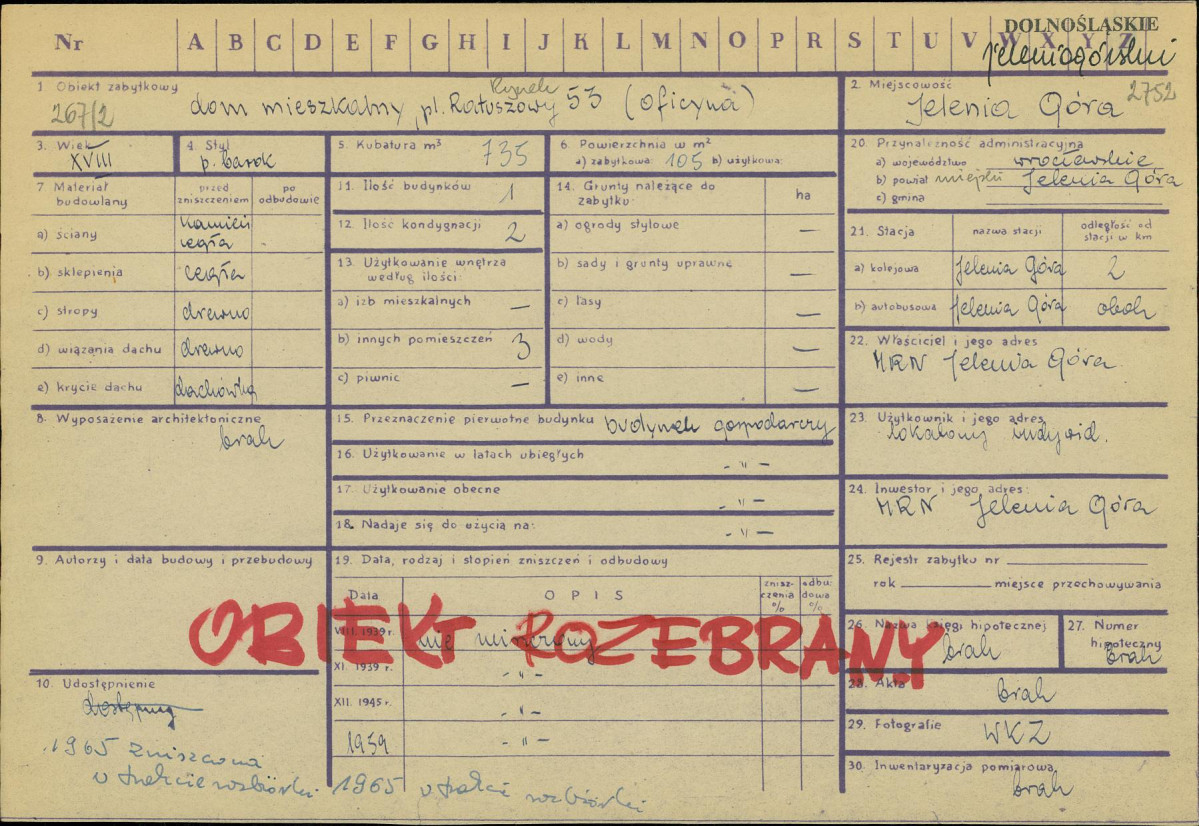 DOLNOŚLĄSKIE
Nr A B C D E F G H I J K L M N O P R S T U V W X Y Z
jeleniogórski
1 Obiekt zabytkowy
267/2
Rynek
dom mieszkalny, pl. Ratuszowy 53 (oficyna)
2. Miejscowość
2752
Jelenia Góra
3. Wiek
XVIII
4. Styl
p. barok
5. Kubatura m³ 735
6. Powierzchnia w m²
a) zabytkowa: 105 b) użytkowa:
7 Materiał budowlany
przed zniszczeniem
po odbudowie
a) ściany kamień cegła
b) sklepienia cegła
c) stropy drewno
d) wiązania dachu drewno
e) krycie dachu dachówka
11. Ilość budynków 1
12. Ilość kondygnacji 2
13. Użytkowanie wnętrza
według ilości:
a) izb mieszkalnych —
b) innych pomieszczeń 3
c) piwnic —
14. Grunty należące do
zabytku:
ha
a) ogrody stylowe —
b) sady i grunty uprawne —
c) lasy —
d) wody —
e) inne —
20. Przynależność administracyjna
a) województwo wrocławskie
b) powiat miejski Jelenia Góra
c) gmina
21. Stacja
nazwa stacji
odległość od
stacji w km
a) kolejowa Jelenia Góra 2
b) autobusowa Jelenia Góra obok
22. Właściciel i jego adres
MRN Jelenia Góra
8. Wyposażenie architektoniczne
brak
15. Przeznaczenie pierwotne budynku budynek gospodarczy
16. Użytkowanie w latach ubiegłych - " -
17. Użytkowanie obecne - " -
18. Nadaje się do użycia na: - " -
23. Użytkownik i jego adres
lokatorzy indywid.
24. Inwestor i jego adres:
MRN Jelenia Góra
9. Autorzy i data budowy i przebudowy
19. Data, rodzaj i stopień zniszczeń i odbudowy
Data
OPIS
znisz-
czenia
%
odbu-
dowa
%
VIII. 1939 r. nie niszczony
XI. 1939 r. - " -
XII. 1945 r. - " -
1959 - " -
1965 w trakcie rozbiórki
OBIEKT ROZEBRANY
25. Rejestr zabytku nr
rok miejsce przechowywania
26. Nazwa księgi hipotecznej
brak
27. Numer
hipoteczny
brak
28. Akta brak
29. Fotografie WKZ
30. Inwentaryzacja pomiarowa
brak
10. Udostępnienie
dostępny
1965 zniszczona
w trakcie rozbiórki